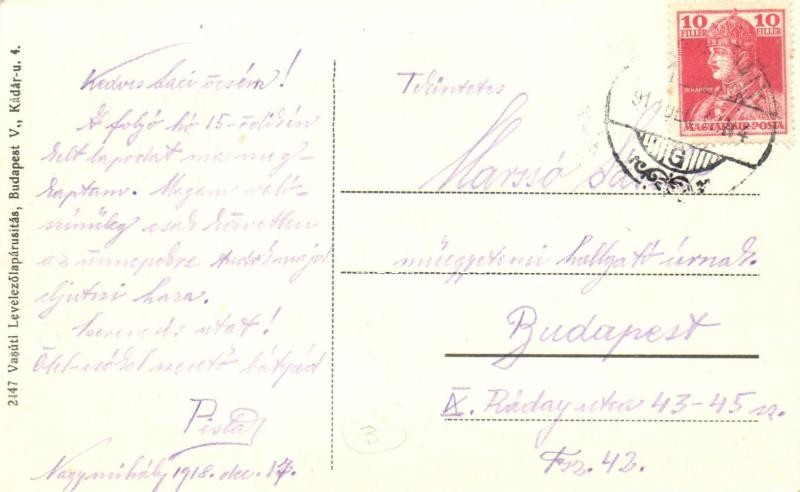 2147 Vasúti Levelezőlapárusitás, Budapest V., Kádár-u. 4.
Kedves Laci öcsém!
A folyó hó 15-ödikén
kelt lapodat ma meg-
kaptam. Magam való-
szinüleg csak közvetlen
az ünnepekre tudok majd
eljutni haza.
Szerencsés utat!
Ölel-csókol szerető bátyád
Pista
Nagymihály 1918. dec. 17.
10 FILLÉR 10 FILLÉR
MAGYAR KIR. POSTA
Tekintetes
Marssó
műegyetemi hallgató úrnak.
Budapest
IX. Ráday utca 43-45 sz.
Fsz. 42.
3